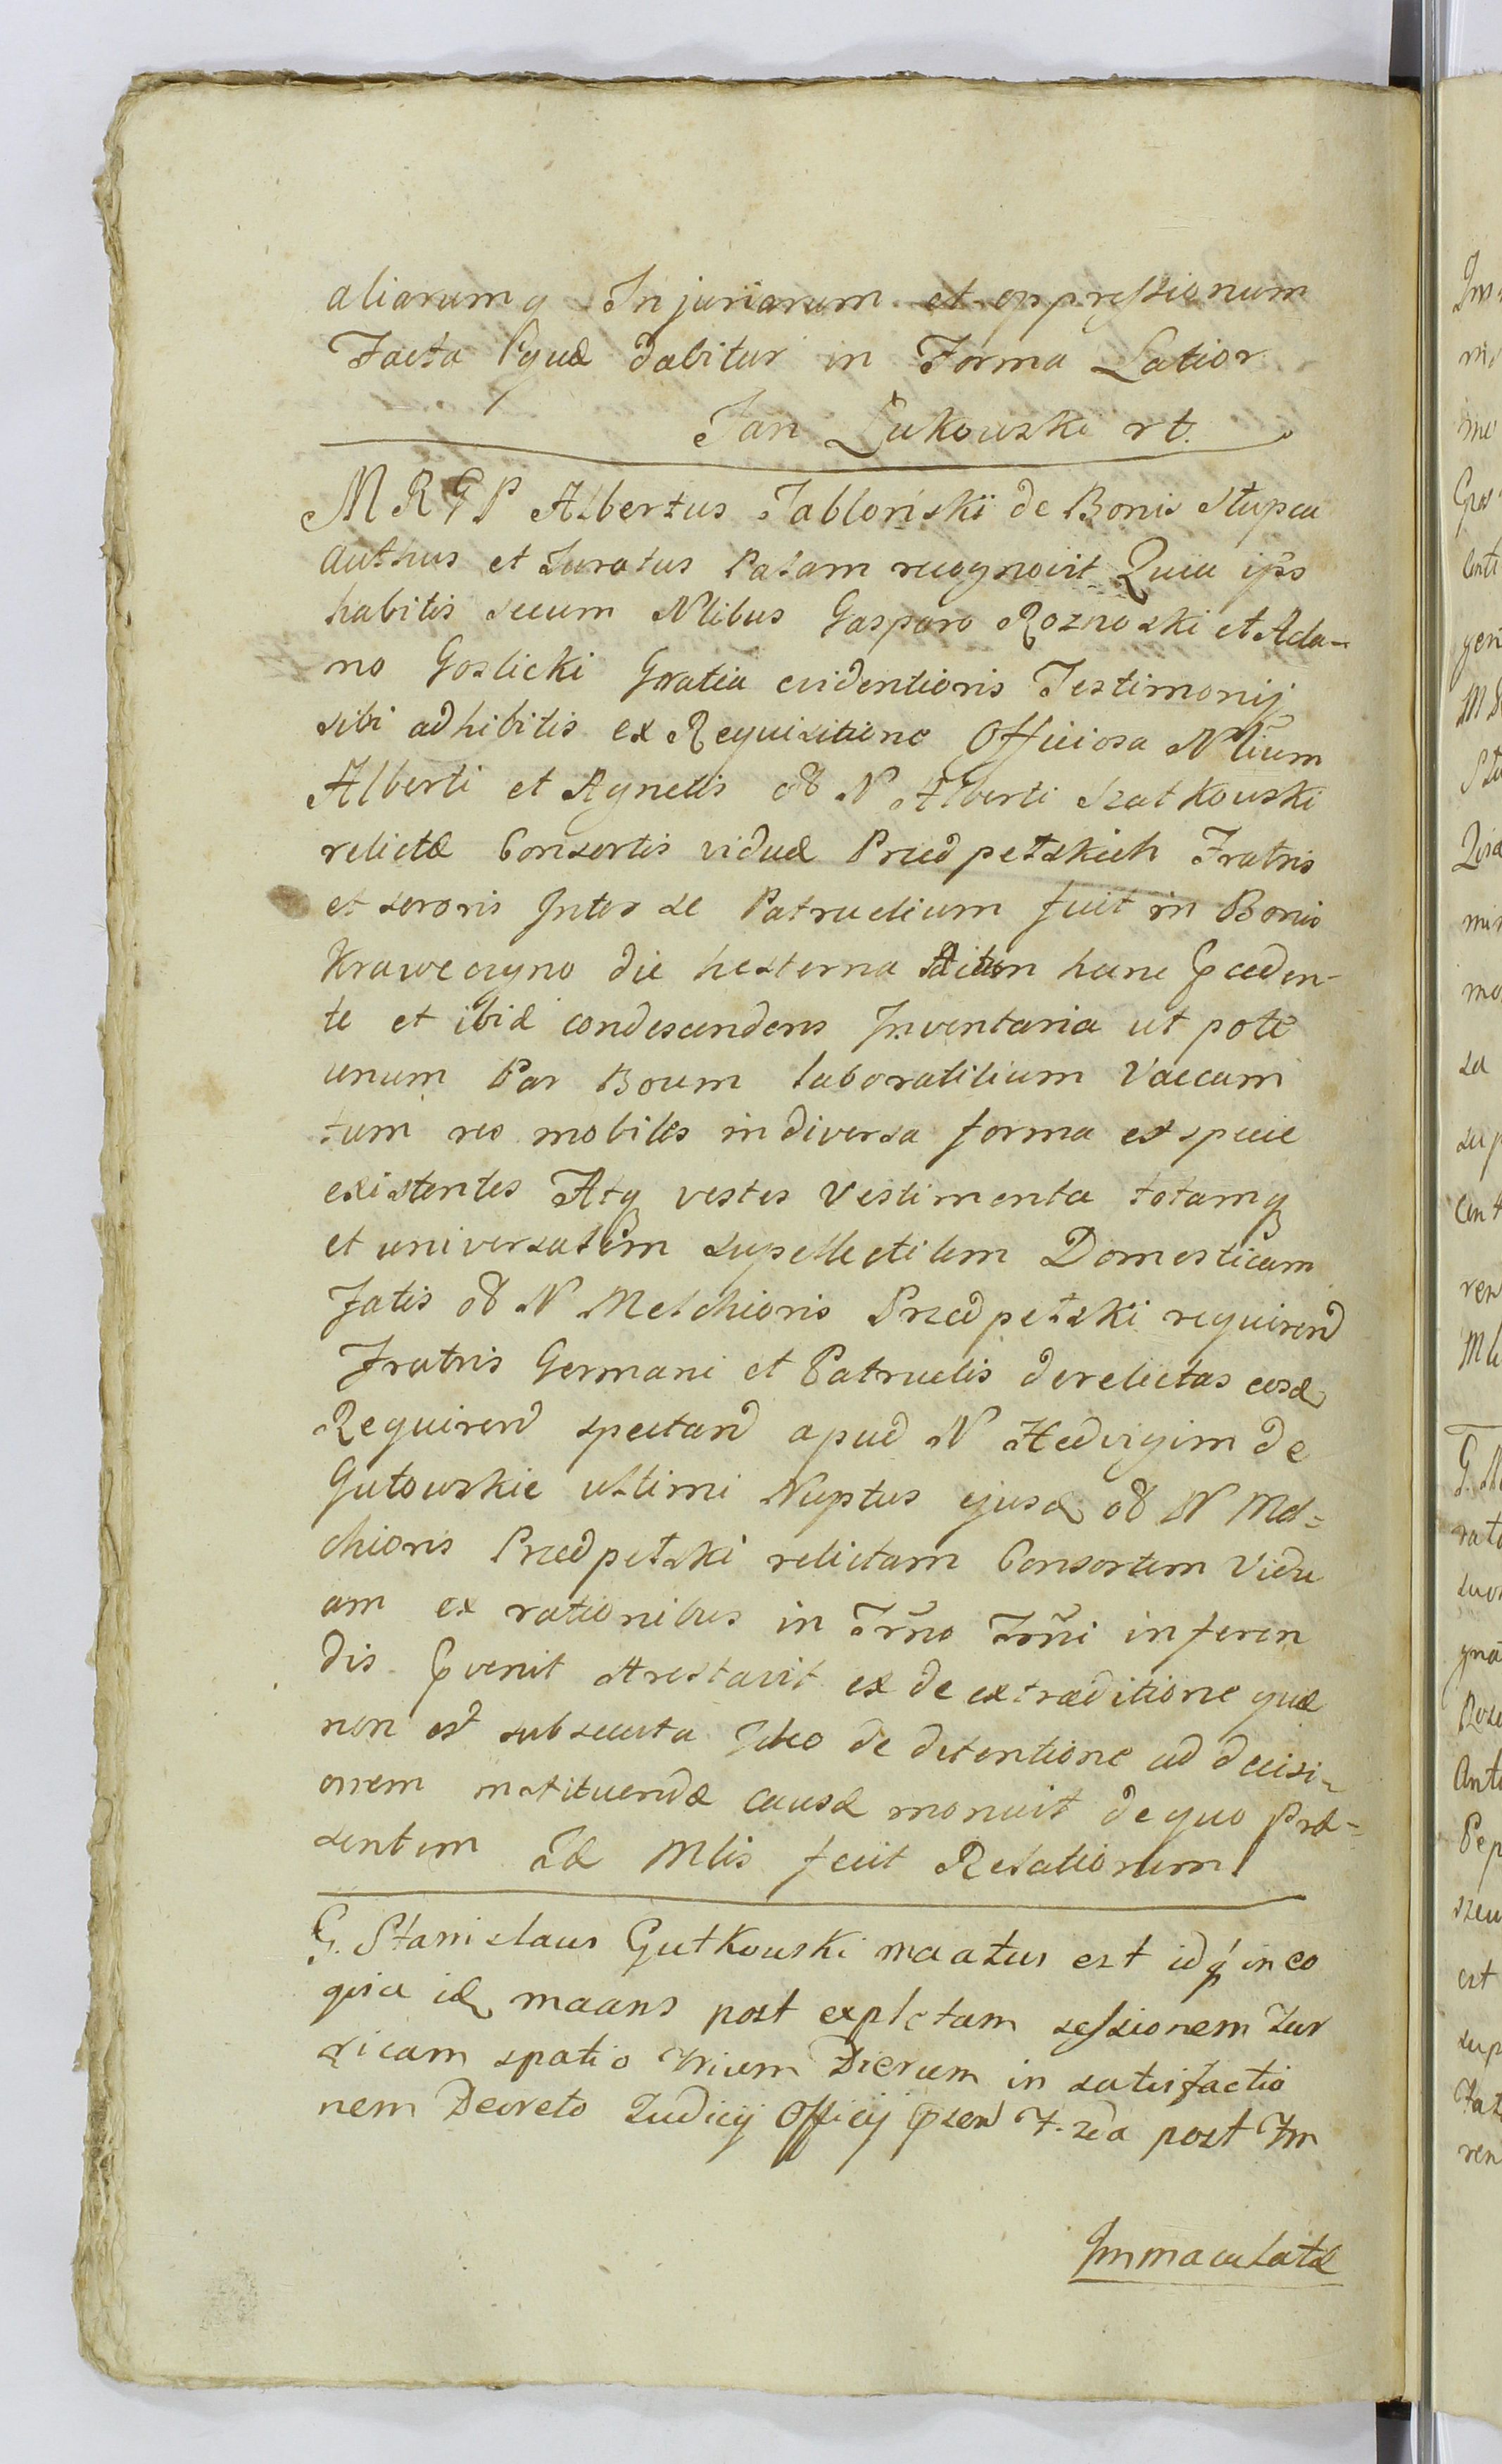 aliarumq Injuriarum et oppressionum
Facta Pquæ dabitur in Forma Latior
Jan Łukowski rt.
M R G P Albertus Jabłoński de Bonis Stupca
authus et Juratus Palam recognovit Quia ips
habitis secum Nlibus Gasparo Roznoski et Ada-
mo Goslicki Gratia evidentioris Testimonij
sibi adhibitis ex Requisitione Officiosa Nlium
Alberti et Agnetis ol N Alberti Szatkowski
relictæ Consortis viduæ Przedpetskich Fratris
et sororis Inter se Patruelium fuit in Bonis
Kraweczyno die hesterna hanc Pceden-
te et ibid condescendens Inventaria ut pote
unum Par Boum laboratilium Vaccam
tum res mobiles in diversa forma et specie
existentes Atq vestes Vestimenta totamq
et universalem supellectilem Domesticam
Fatis ol N Melchioris Przedpetski requirend
Fratris Germani et Patruelis derelictas eosd
Requirend spectand apud N Hedvigim de
Gutowskie ultimi Nuptus ejusd ol N Mel=
chioris Przedpetski relictam Consortem Vidu
am ex rationibus in Trno Trni inferen
dis Pvenit Arestavit ex de extraditione quæ
non est subsecuta Ideo de detentione ad decisi=
onem instituendæ causæ monuit de quo Præ=
sentem Id Mlis fecit Relationem
G. Stanislaus Gutkowski maatus est idq in eo
quia id maans post expletam sessionem Jur
dicam spatio trium Dierum in satisfactio
nem Decreto Judicij Officij Psen F. 2da post Im
Immaculatæ